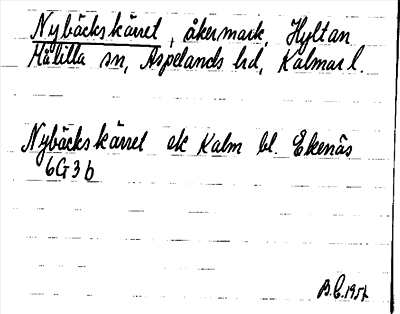 Nybäckskärret, åkermark, Hyltan
Målilla sn, Aspelands hd, Kalmar l.
Nybäckskärret ek Kalm bl. Ekenäs
6G3b
B.C. 1957